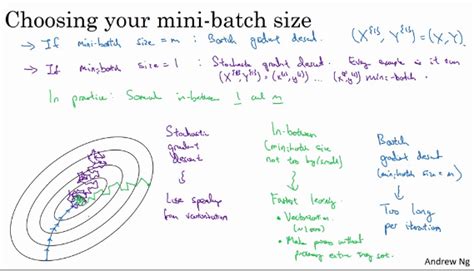 Choosing your mini-batch size
→ If mini-batch size = m : Batch gradient descent. (X^{1}, Y^{1}) = (X, Y).
→ If mini-batch size = 1 : Stochastic gradient descent. Every example is its own
(X^{1}, Y^{1}) = (x^(1), y^(1)) ... mini-batch.
In practice: Somewhere in-between 1 and m
Stochastic
gradient
descent
Lose speedup
from vectorization
In-between
(mini-batch size
not too big/small)
Fastest learning.
• Vectorization
(~1000)
• Make progress without
processing entire training set.
Batch
gradient descent
(mini-batch size = m)
Too long
per iteration
Andrew Ng